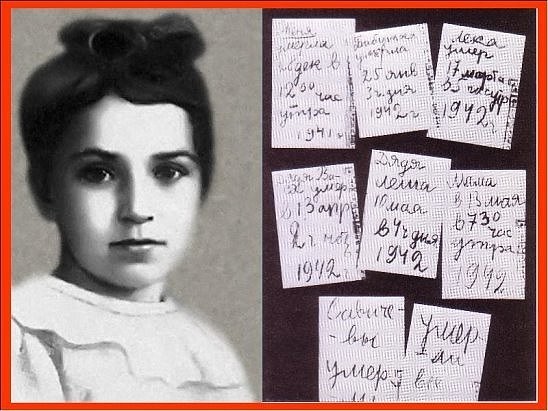 Женя
умерла
28 дек в
12 30 час
утра
1941 г
Бабушка
умерла
25 янв
3 ч дня
1942 г
Лека
умер
17 марта
в 5 час утр
1942 г
Дядя Ва
ся умер
в 13 апр
2 ч ноч
1942 г
Дядя
Леша
10 мая
в 4 ч дня
1942
Мама
в 13 мая
в 7 30
час
утра
1942
Савиче
-вы
умер
умер-
ли
все